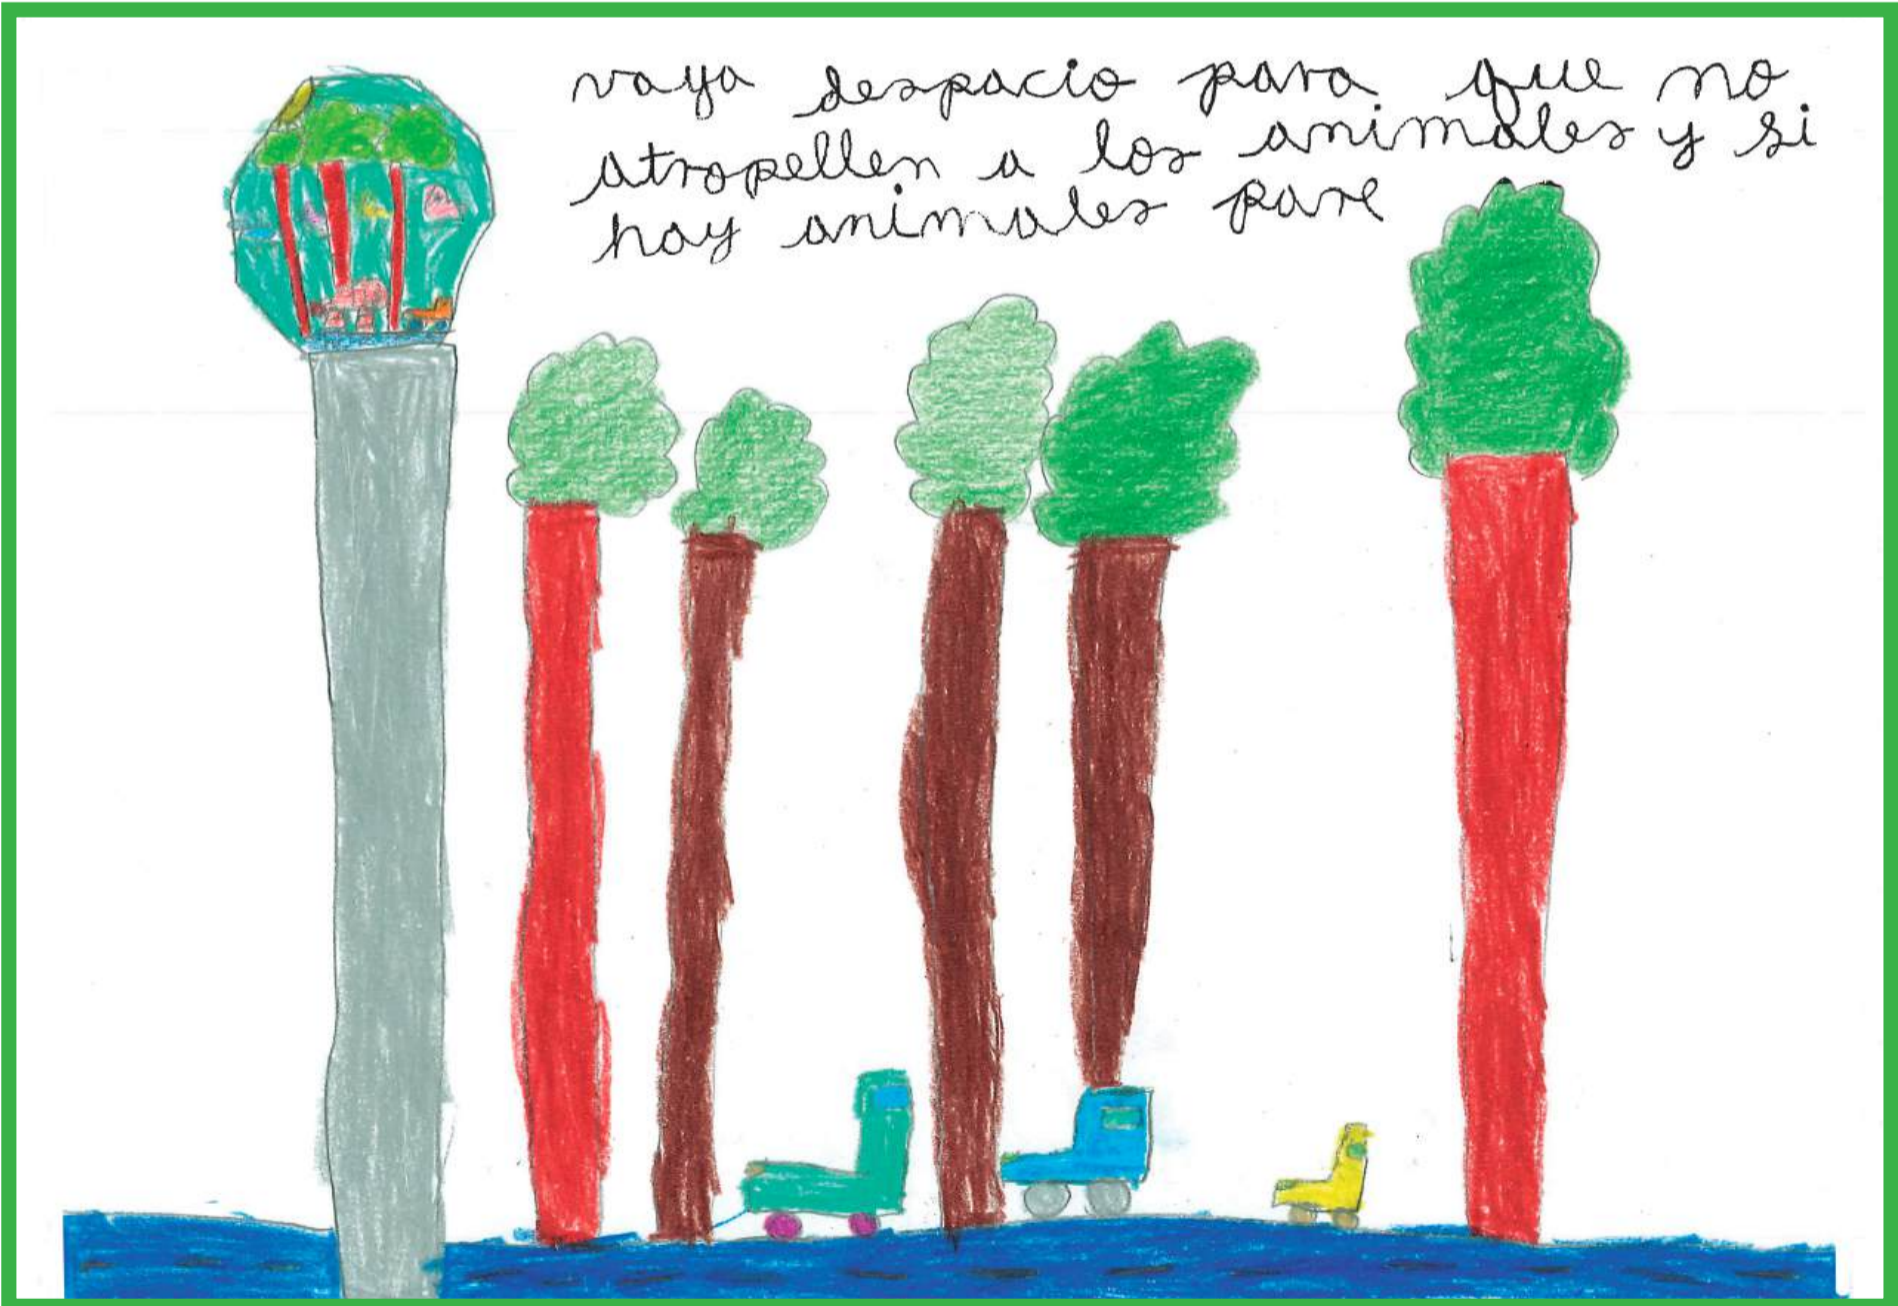 vaya despacio para que no
atropellen a los animales y si
hay animales pare